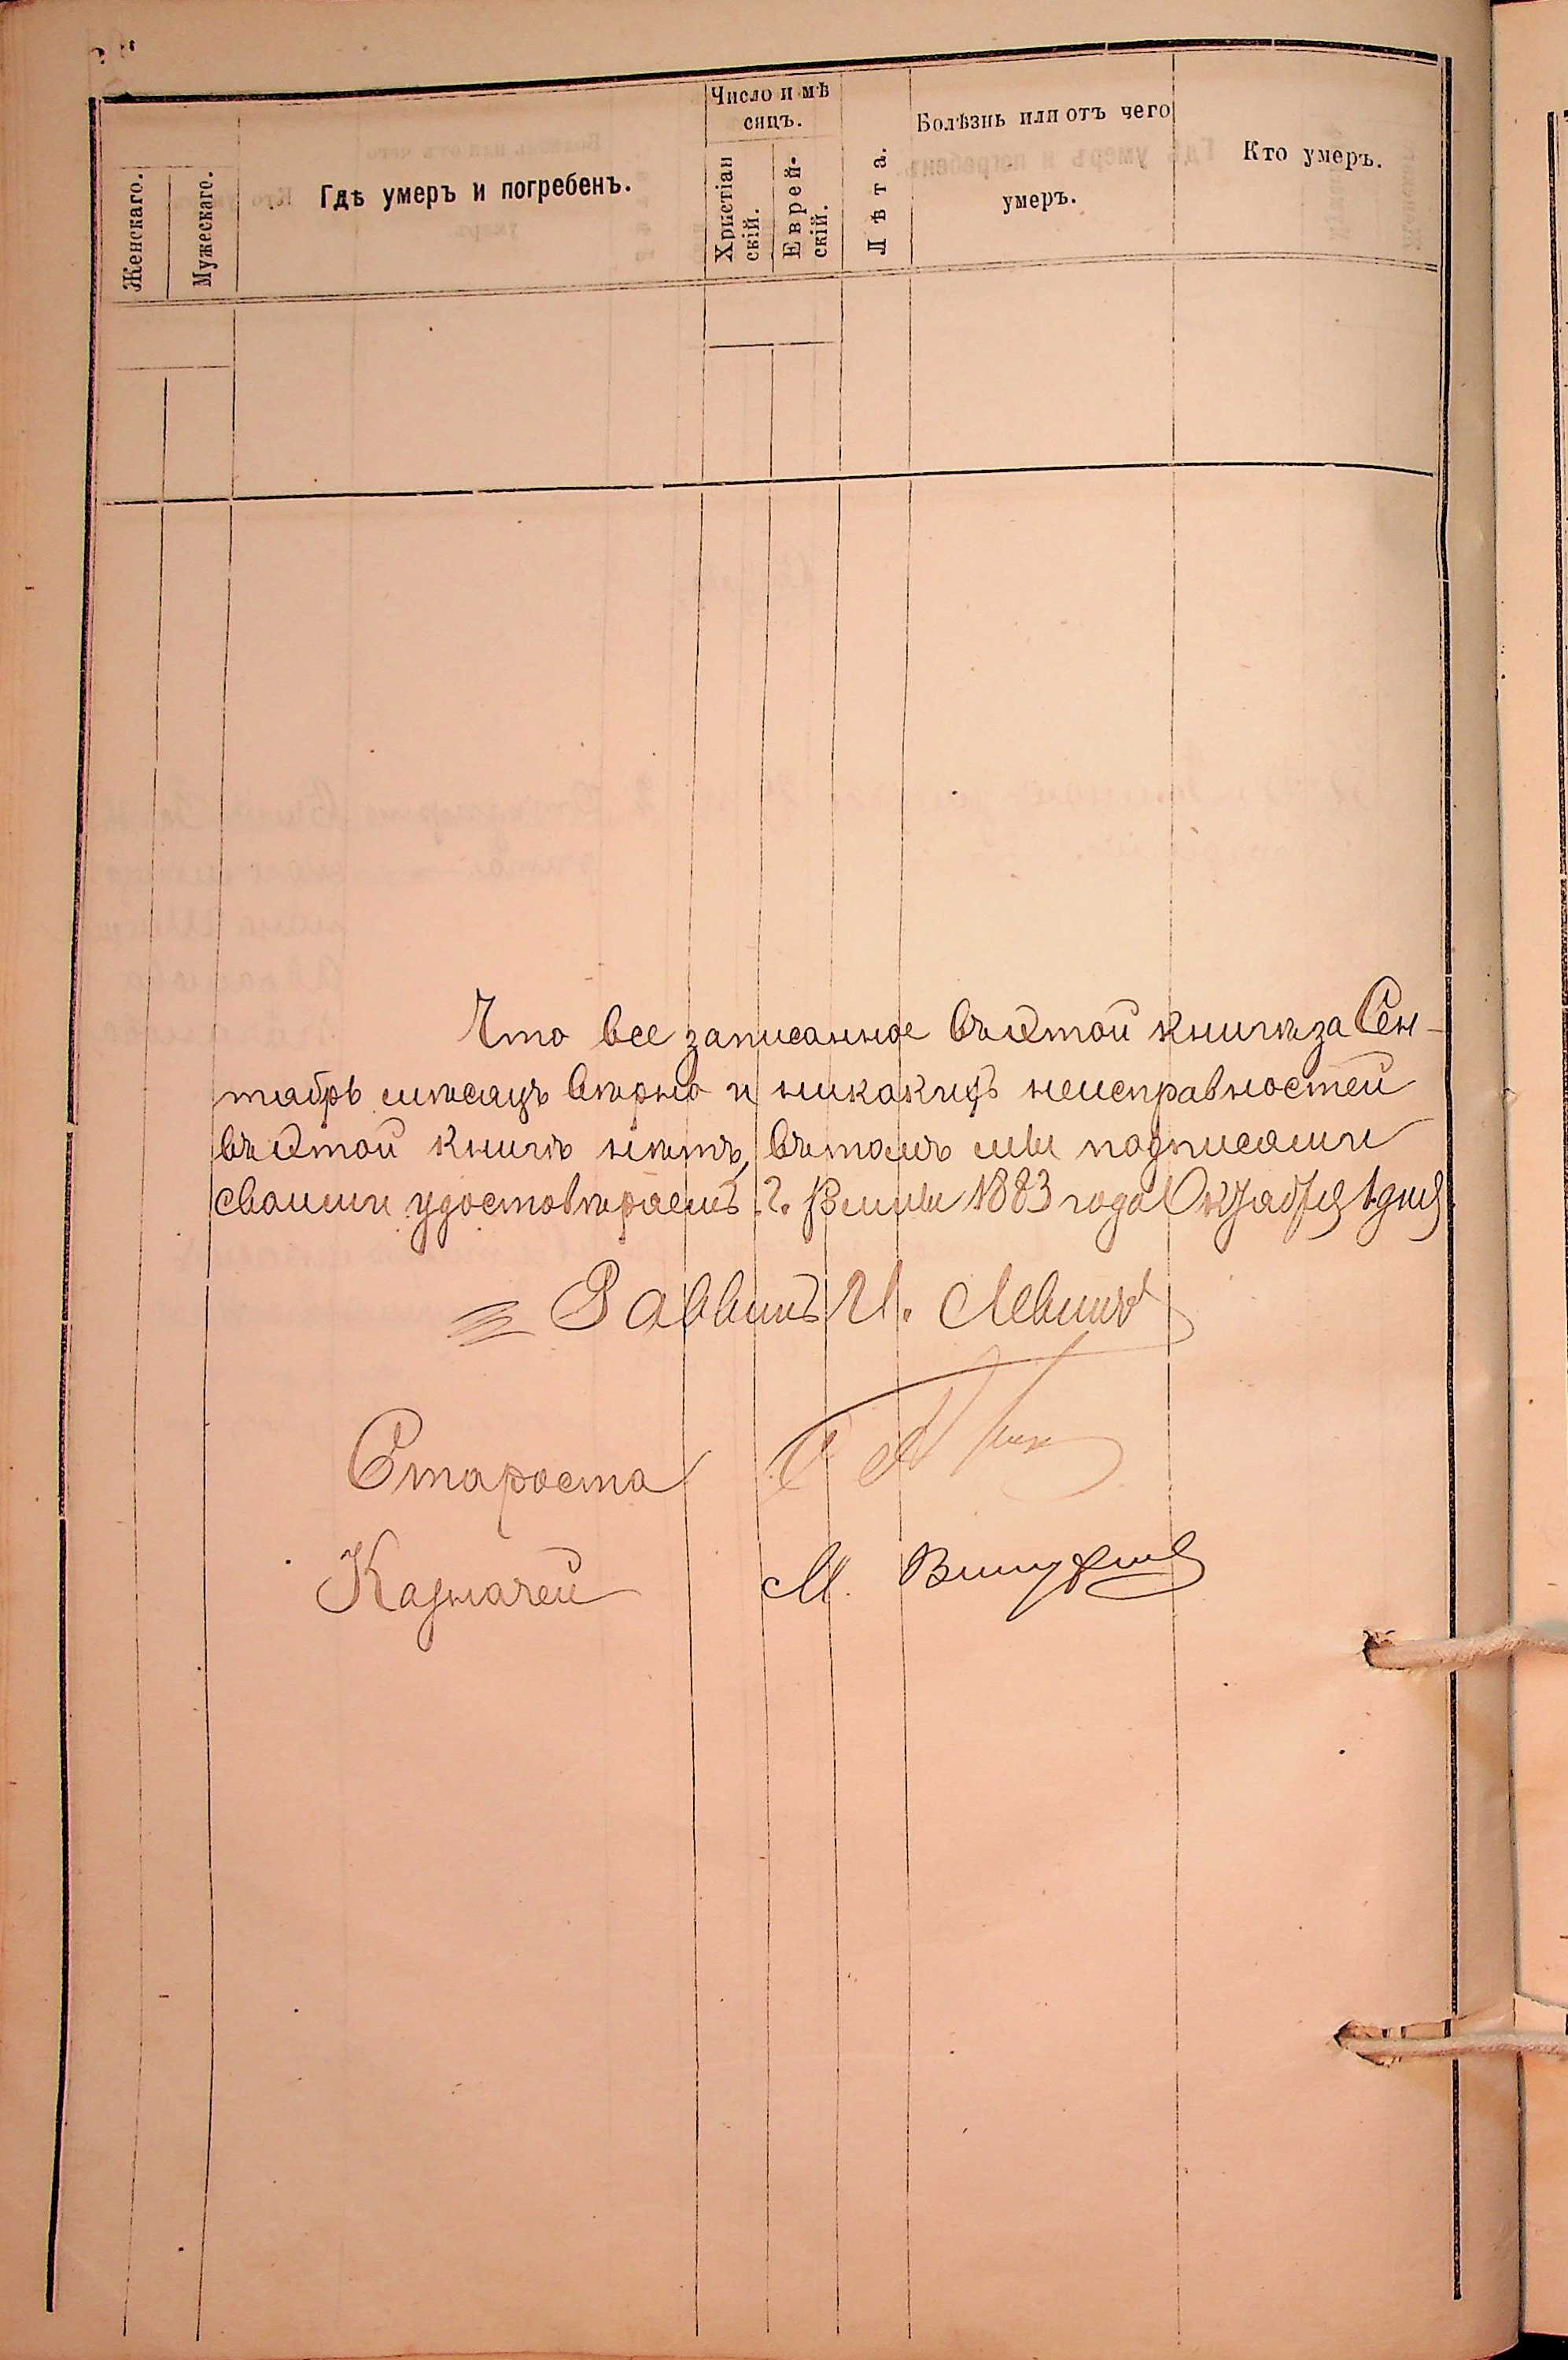 Число и мѣ
сяцъ.
Женскаго.
Мужескаго.
Гдѣ умеръ и погребенъ.
Христіан
скій.
Еврей-
скій.
Лѣта.
Болѣзнь или отъ чего
умеръ.
Кто умеръ.
Что все записанное въ этой книгѣ за Сен-
тябрь мѣсяцъ вѣрно и никакихъ неисправностей
въ этой книгѣ нѣтъ, въ томъ мы подписами
своими удостовѣряемъ г. 1883 года Октября 1 дня
Раввинъ И. Левинъ
Староста
Казначей М.